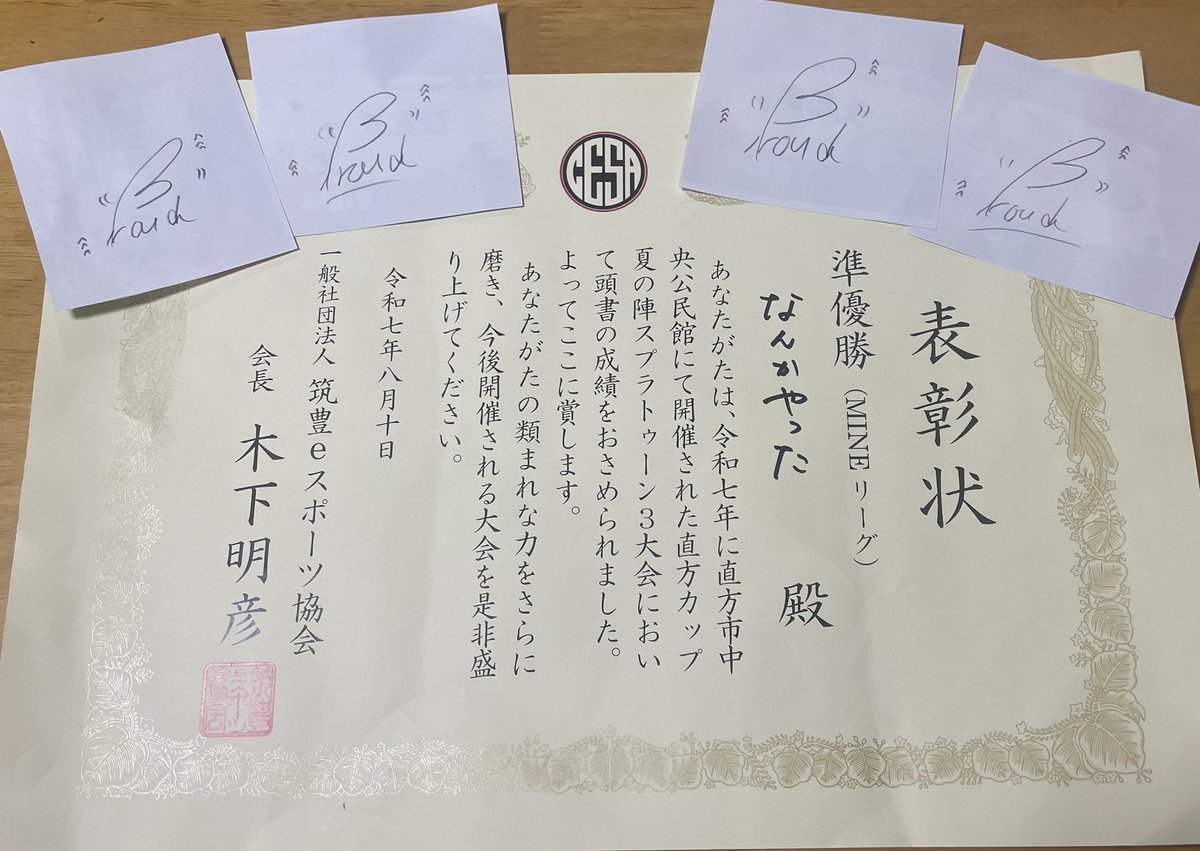 CESA
表彰状
準優勝（MINEリーグ）
なんかやった 殿
あなたがたは、令和七年に直方市中
央公民館にて開催された直方カップ
夏の陣スプラトゥーン3大会におい
て頭書の成績をおさめられました。
よってここに賞します。
あなたがたの類まれな力をさらに
磨き、今後開催される大会を是非盛
り上げてください。
令和七年八月十日
一般社団法人 筑豊eスポーツ協会
会長 木下明彦